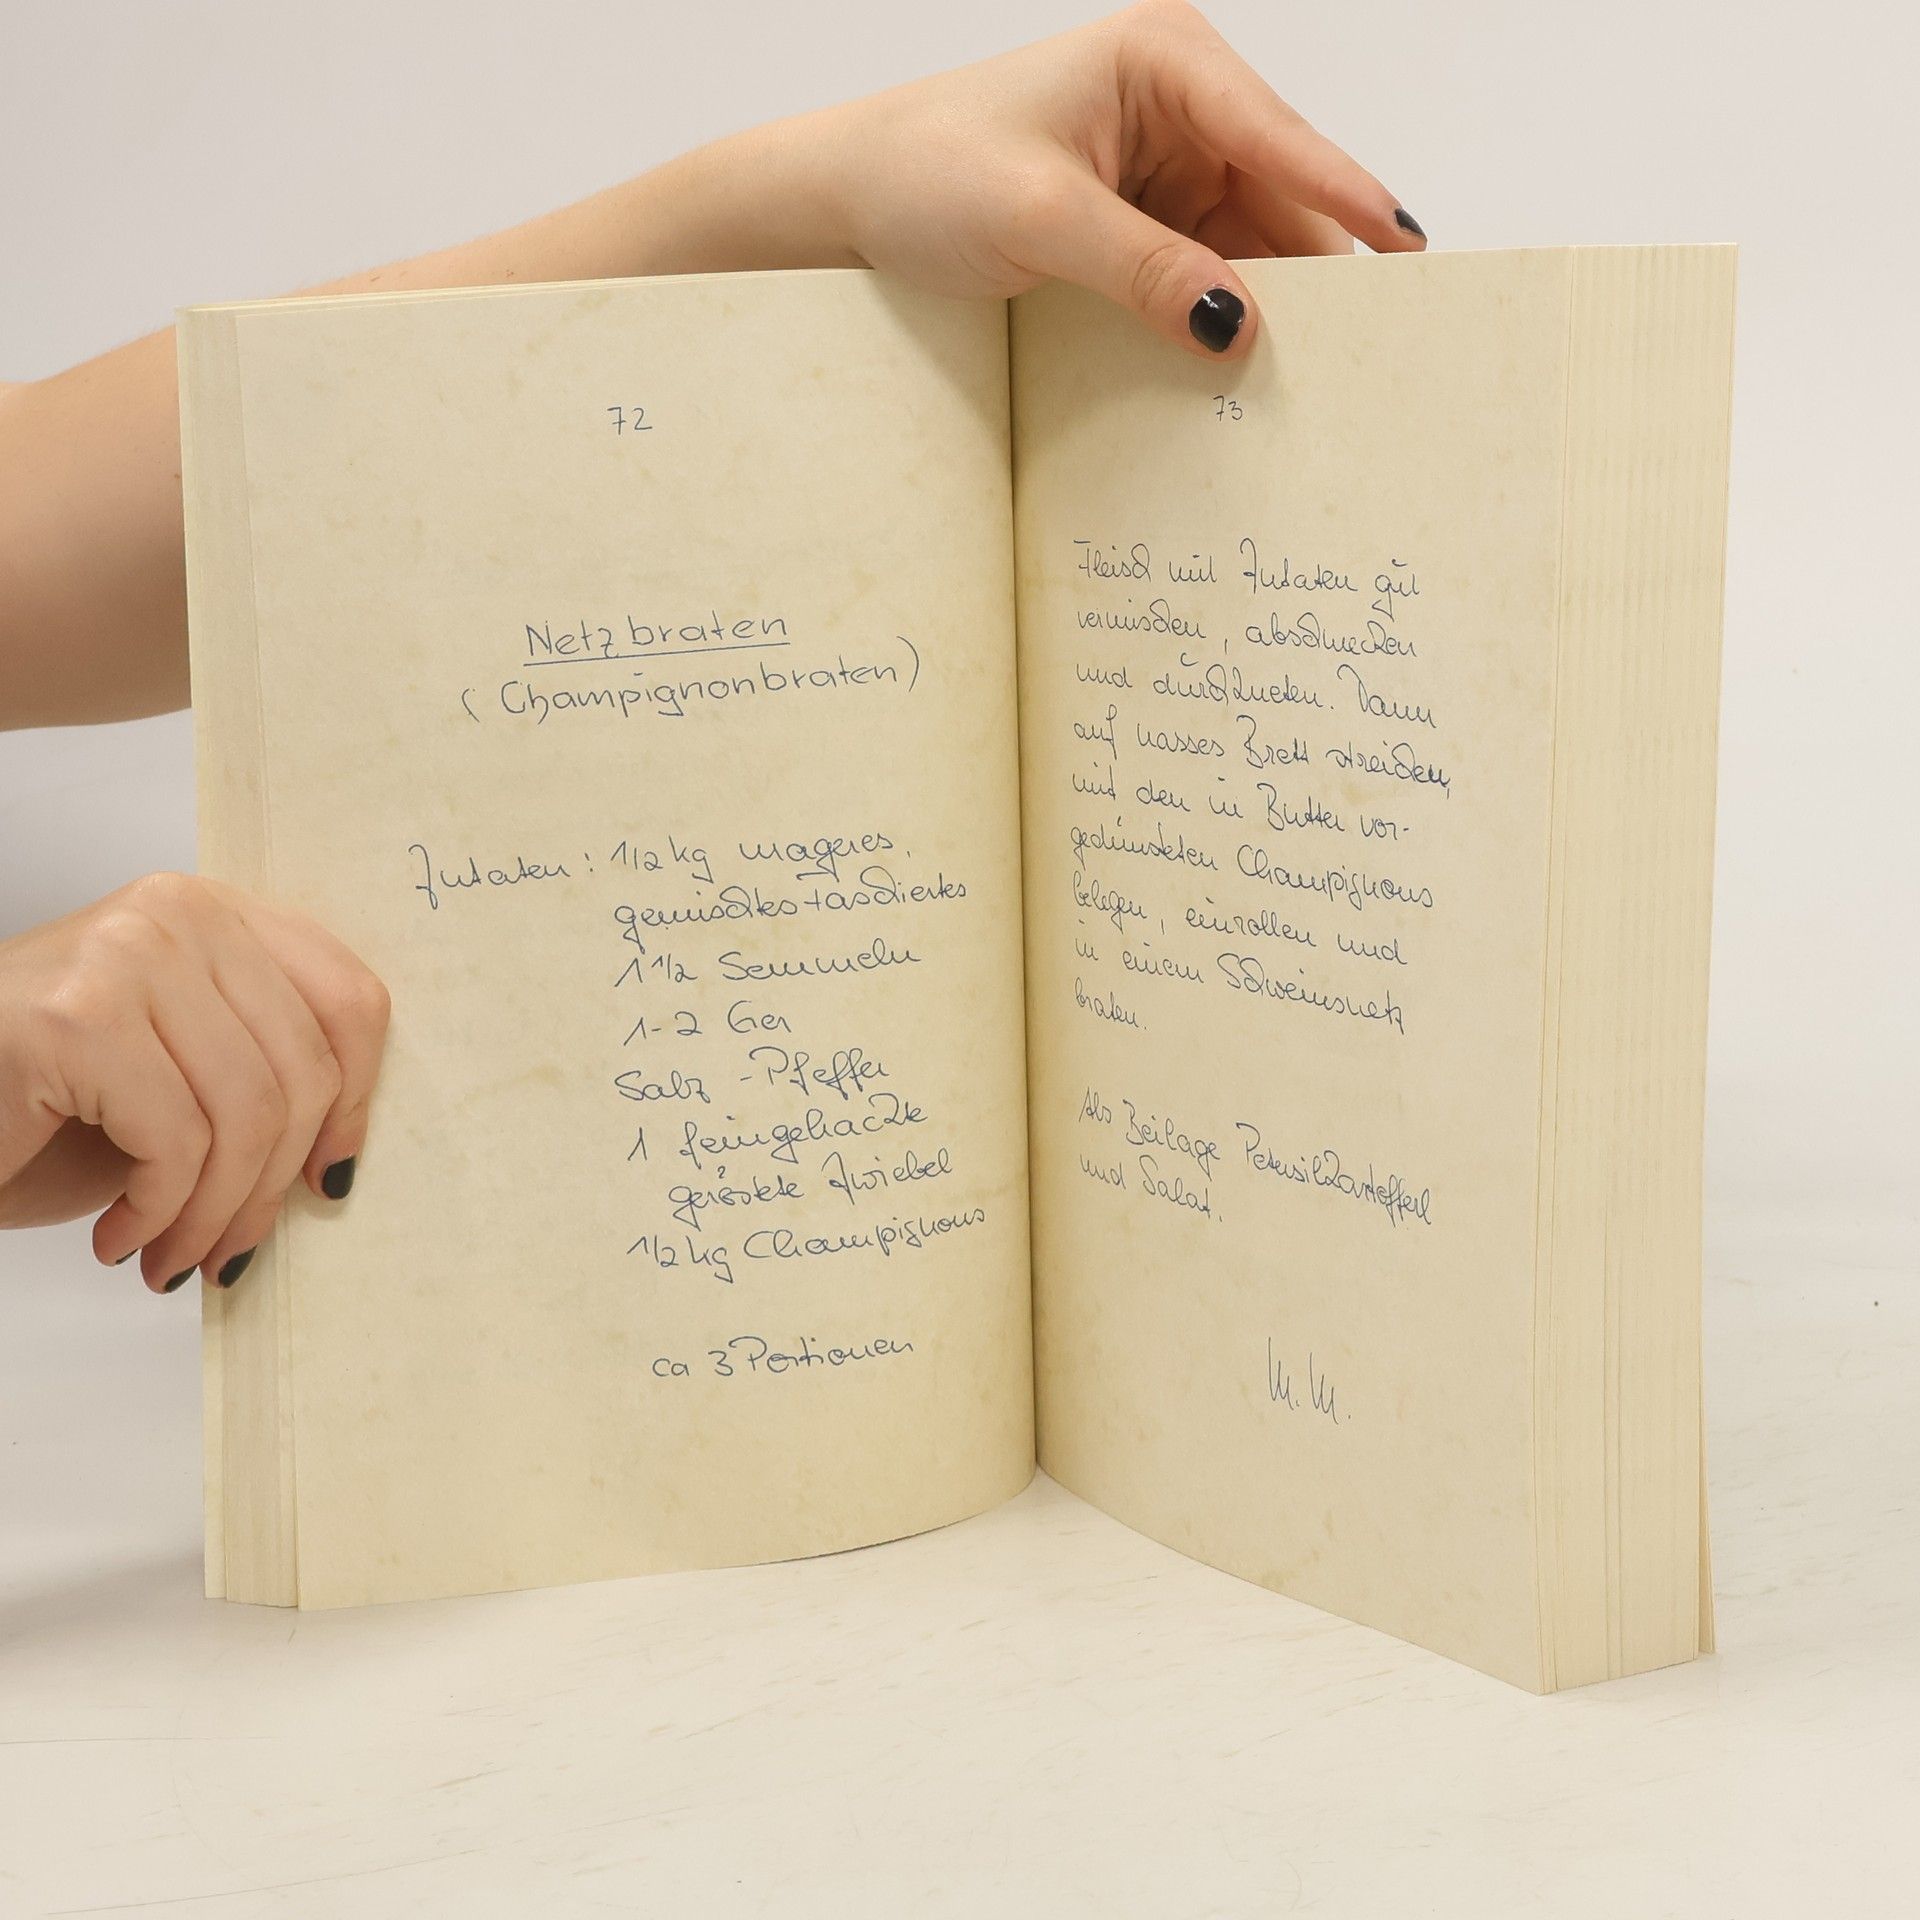 72
Netzbraten
(Champignonbraten)
Zutaten: 1/2 kg mageres,
gemischtes Faschiertes
1 1/2 Semmeln
1-2 Eier
Salz - Pfeffer
1 feingehackte
geröstete Zwiebel
1/2 kg Champignons
ca 3 Portionen
73
Fleisch mit Zutaten gut
vermischen, abschmecken
und durchkneten. Dann
auf nasses Brett streichen,
mit den in Butter vor-
gedünsteten Champignons
belegen, einrollen und
in einem Schweinsnetz
braten.
Als Beilage Petersilkartofferl
und Salat.
M. M.